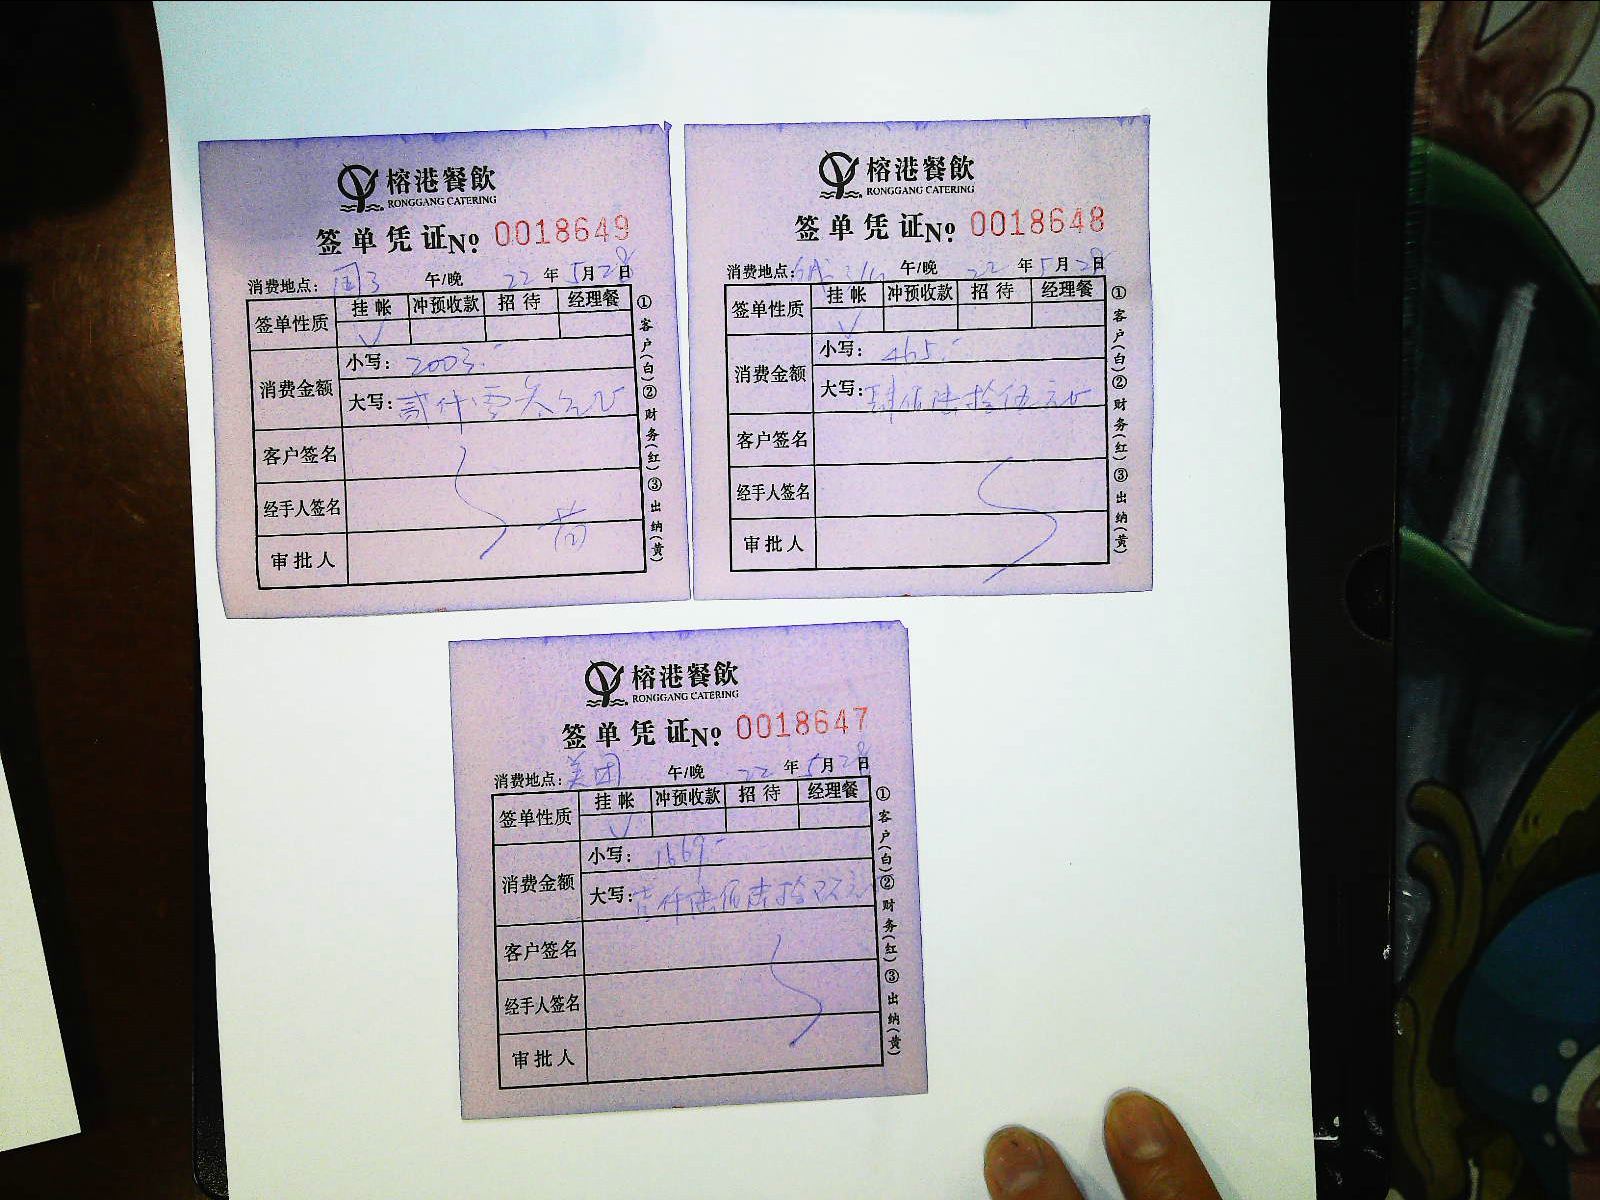 榕港餐飲
RONGGANG CATERING
签单凭证№ 0018649
消费地点: 午/晚 22 年 5月 28日
签单性质 挂帐 冲预收款 招待 经理餐
✓
消费金额 小写: 2003.-
大写: 贰仟零叁元正
客户签名
经手人签名
审批人
①客户(白)②财务(红)③出纳(黄)
榕港餐飲
RONGGANG CATERING
签单凭证№ 0018648
消费地点: 午/晚 22 年 5月 28日
签单性质 挂帐 冲预收款 招待 经理餐
✓
消费金额 小写: 465.-
大写: 肆佰陆拾伍元正
客户签名
经手人签名
审批人
①客户(白)②财务(红)③出纳(黄)
榕港餐飲
RONGGANG CATERING
签单凭证№ 0018647
消费地点: 美团 午/晚 22 年 5月 28日
签单性质 挂帐 冲预收款 招待 经理餐
✓
消费金额 小写: 1669.-
大写: 壹仟陆佰陆拾玖元
客户签名
经手人签名
审批人
①客户(白)②财务(红)③出纳(黄)